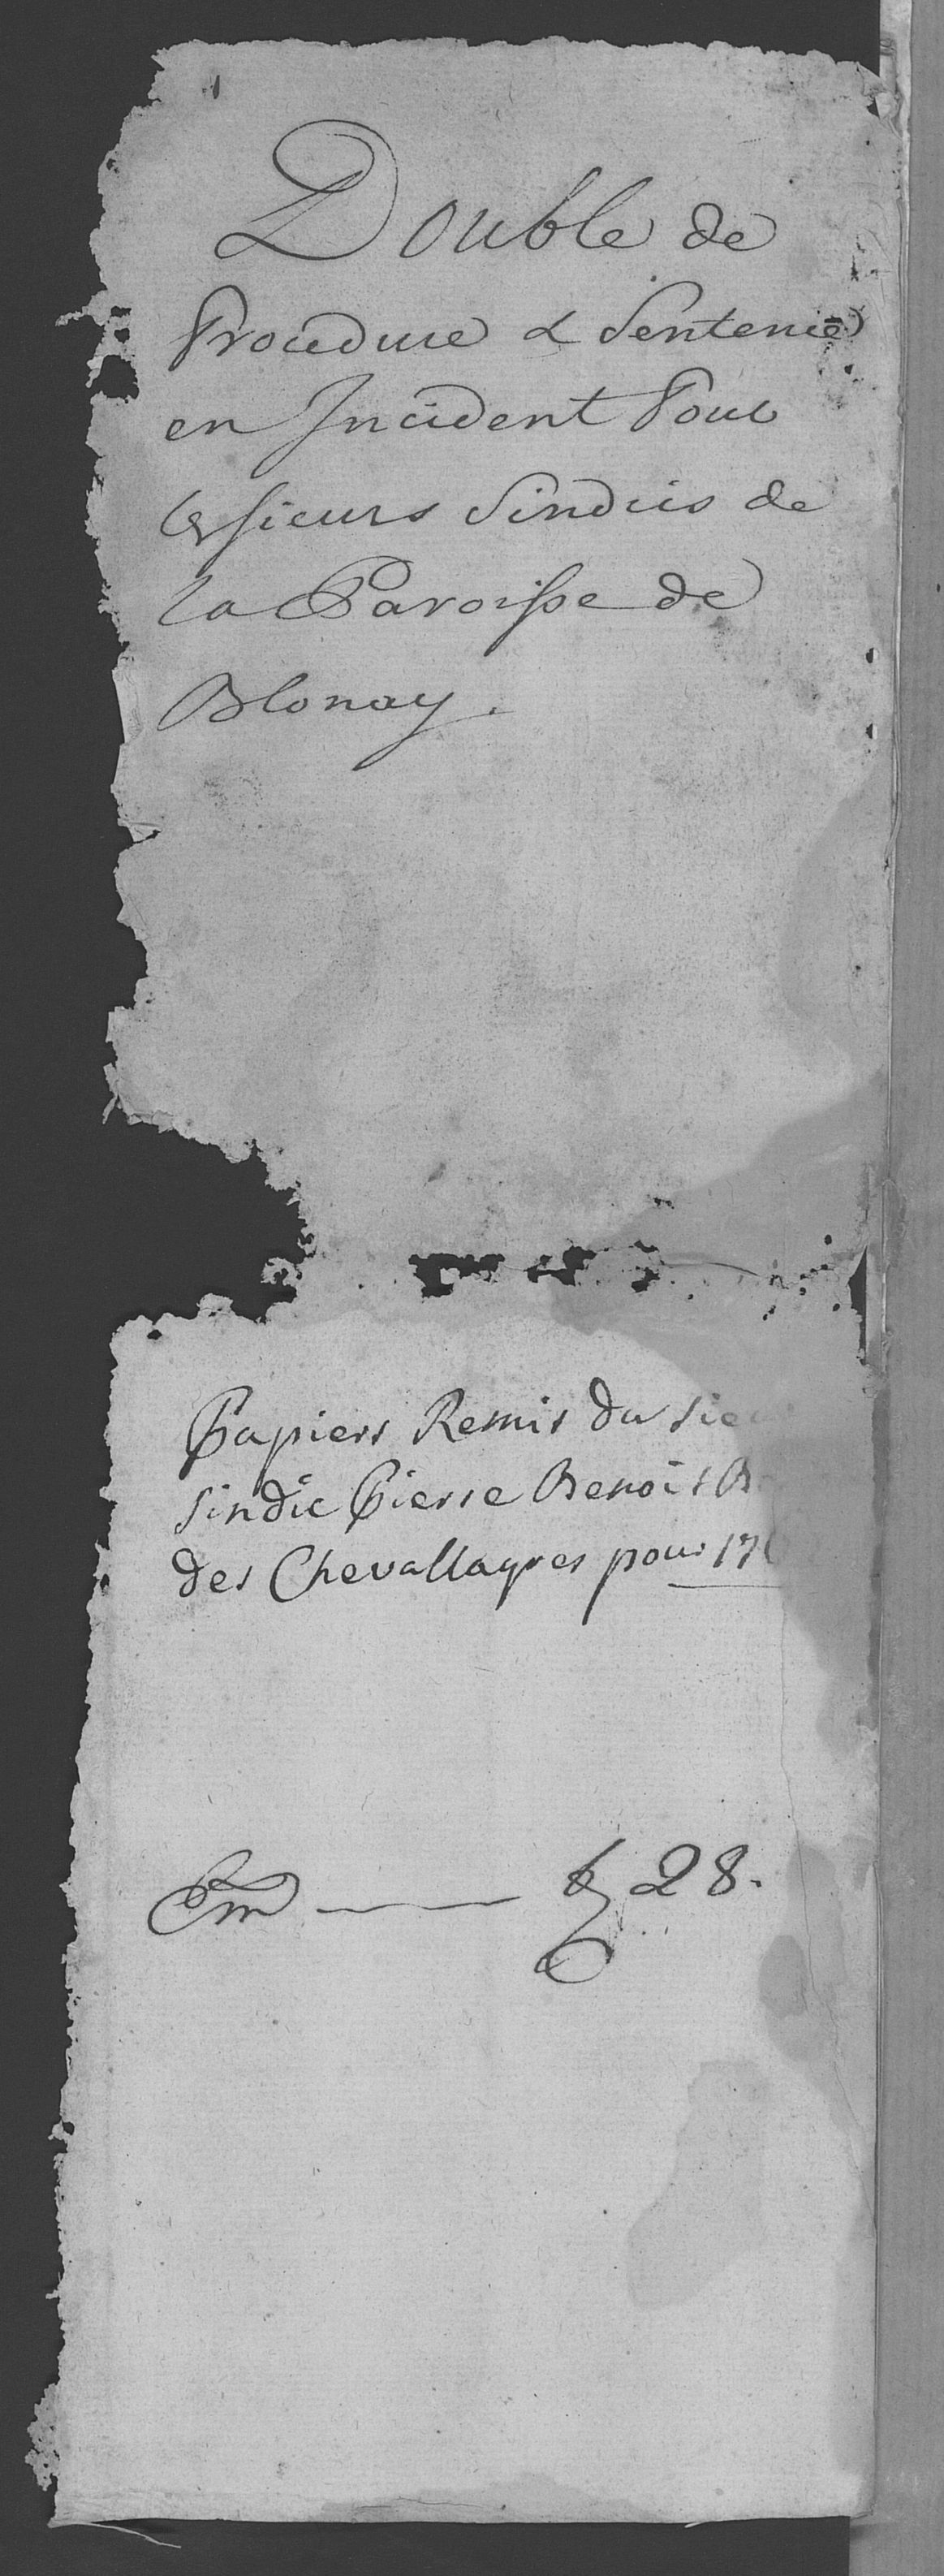 Double de
Procedure & Sentence
en Incident Pour
les sieurs Sindics de
la Paroisse de
Blonay.
Papiers Remis du sieu
sindic Pierre Benoit B
des Chevallayres pour 17
28.